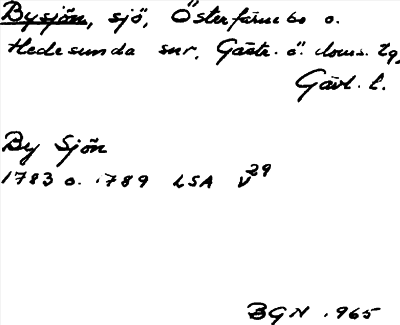 Bysjön, sjö, Österfärnebo o.
Hedesunda snr, Gästr. ö. doms. tg,
Gävl. l.
By Sjön
1783 o. 1789 LSA V29
BGN 1965